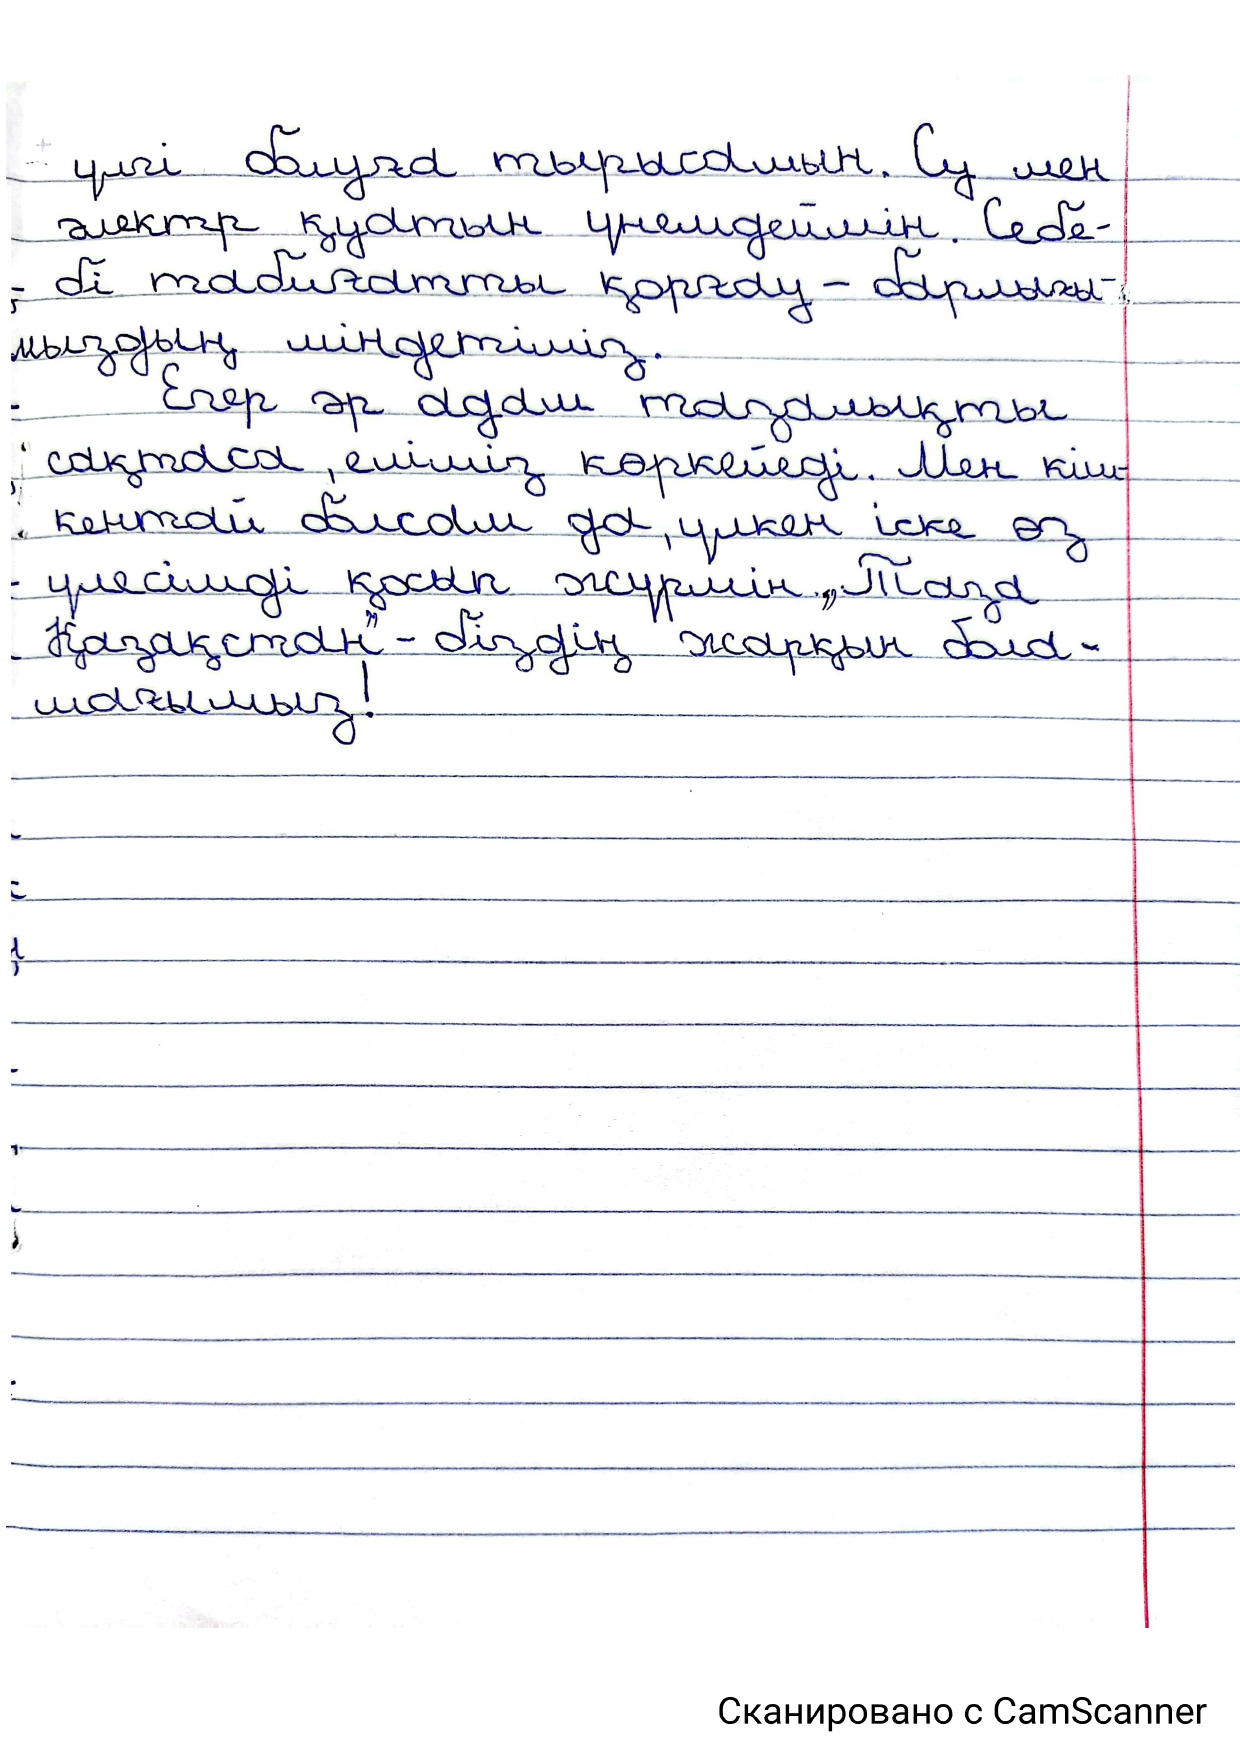 үлгі болуға тырысамын. Су мен
электр қуатын үнемдеймін. Себе-
бі табиғатты қорғау – барлығы-
мыздың міндетіміз.
Егер әр адам тазалықты
сақтаса, еліміз көркейеді. Мен кіш-
кентай болсам да, үлкен іске өз
үлесімді қосып жүрмін. „Таза
Қазақстан” – біздің жарқын бола-
шағымыз!
Сканировано с CamScanner